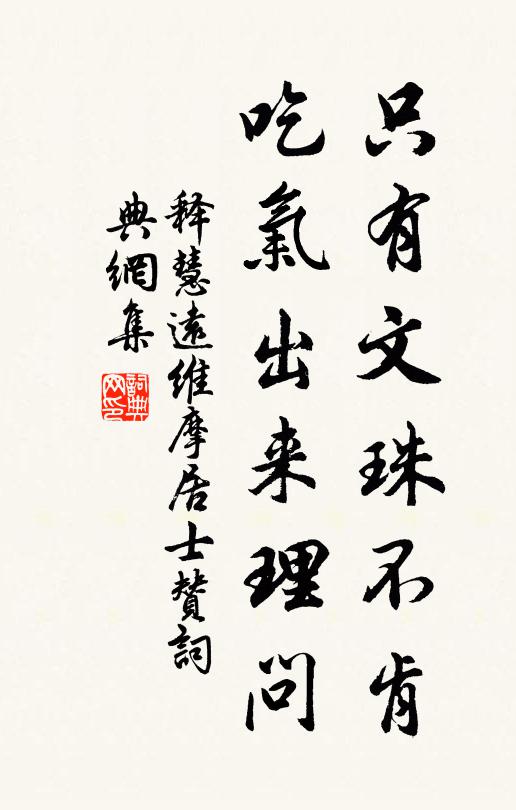 只有文珠不肯
吃氣出来理問
释慧遠維摩居士賛詞
典網集
詞典
网印